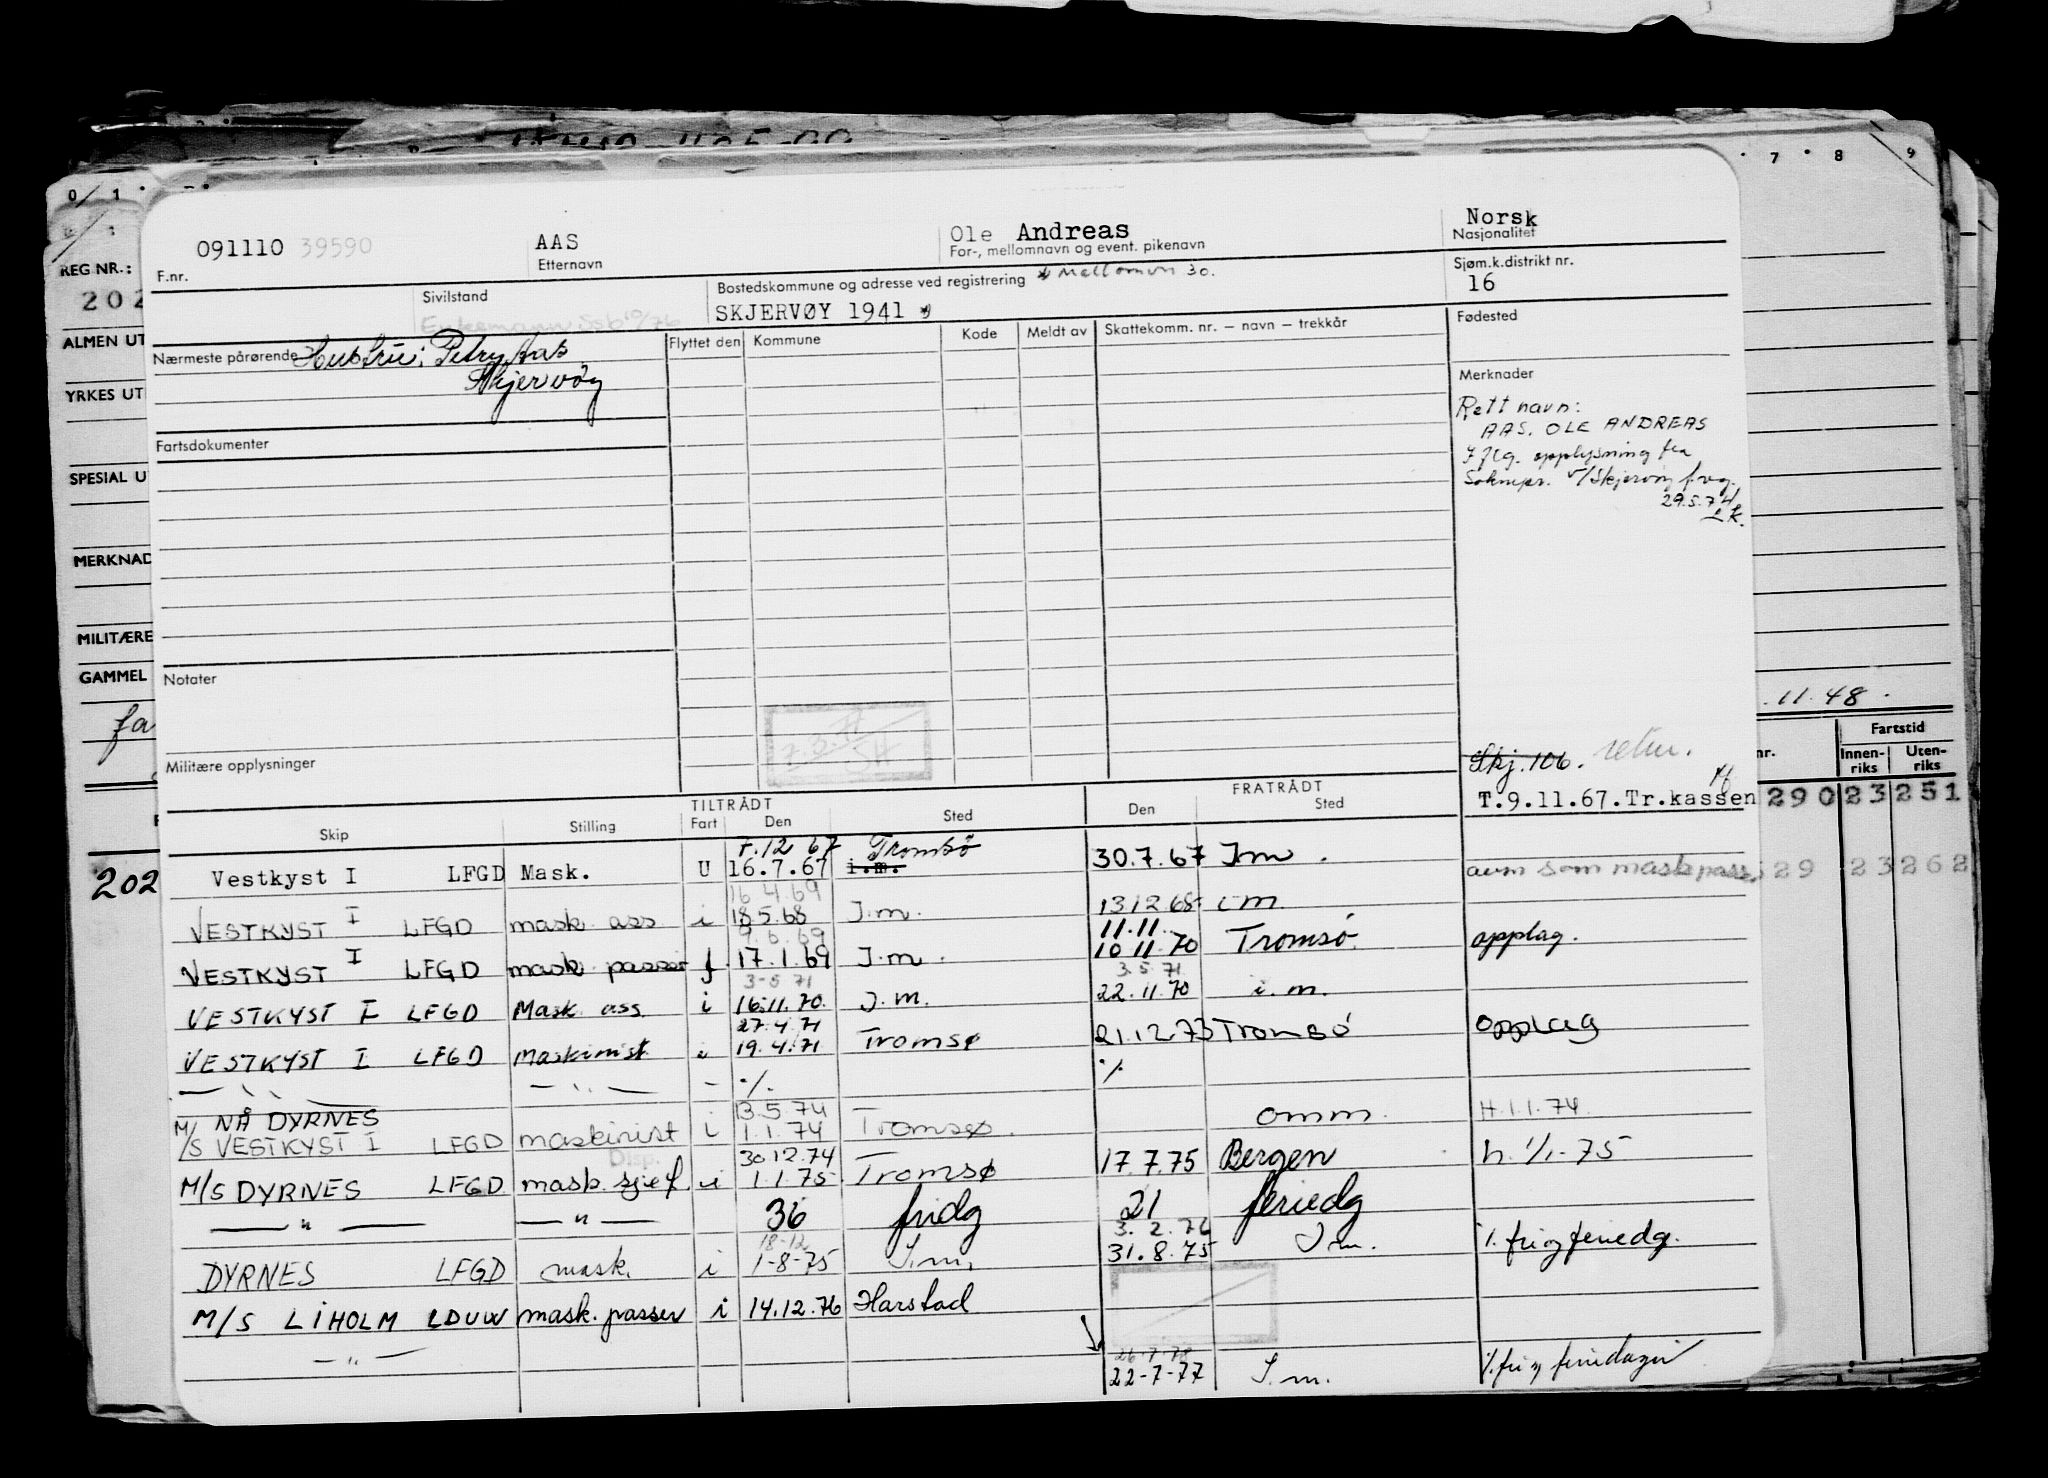 0 1 7 8 9
REG NR.:
202
ALMEN UT
YRKES UT
SPECIAL U
MERKNAD
MILITÆRE
GAMMEL
fa
202
091110 39590
F.nr.
AAS
Etternavn
Ole Andreas
For-, mellomnavn og event. pikenavn
Norsk
Nasjonalitet
Sivilstand
Enkemann
Bostedskommune og adresse ved registrering * Mellomvn 30.
SKJERVØY 1941 *
Sjøm.k.distrikt nr.
16
Nærmeste pårørende Hustru: Petry Aas
Skjervöy
Flyttet den Kommune Kode Meldt av Skattekomm. nr. – navn – trekkår
Fødested
Merknader
Rett navn:
AAS, OLE ANDREAS
Iflg. opplysning fra
Soknepr. v/Skjervöy
29.5.74
Fartsdokumenter
Notater
Militære opplysninger
Skj. 106. retur.
T.9.11.67.Tr.kassen
11.48.
nr. Fartstid
Innen-riks Uten-riks
290 23 251
29 23 262
TILTRÅDT FRATRÅDT
Skip Stilling Fart Den Sted Den Sted
7.12 67 Tromsö
Vestkyst I LFGD Mask. U 16.7.67 i.m. 30.7.67 I m. avm som maskpass.
16 4.69
VESTKYST I LFGD mask. ass i 18.5.68 I.m. 13 12 68 i m
9.6.69 11.11.
VESTKYST I LFGD mask passer f 17.1.69 I.m. 10 11 70 Tromsö. opplag.
3-5 71 3.5.71
VESTKYST I LFGD Mask. ass. i 16.11.70. I.m. 22.11.70 i.m.
27.4.71
VESTKYST I LFGD Maskinist i 19.4.71 Tromsø 21.12.73 Tromsö opplag
— " — — " — – ./. ./.
NÅ DYRNES 13.5.74
M/S VESTKYST I LFGD maskinist i 1.1.74 Tromsø. omm. H.1.1.74.
Disp. 30.12.74
M/S DYRNES LFGD mask. sjef. i 1.1.75 Tromsø 17.7.75 Bergen h. 1/1-75
— " — — " — 36 fridg 21 feriedg
18-12 3.2.76
DYRNES LFGD mask. i 1-8-75 I.m. 31.8.75 I m. %. fri og feriedg.
M/S LIHOLM LDUW mask. passer i 14.12.76 Harstad
26.7.78
— " — 22-7-77 I.m. %. fri og feriedager